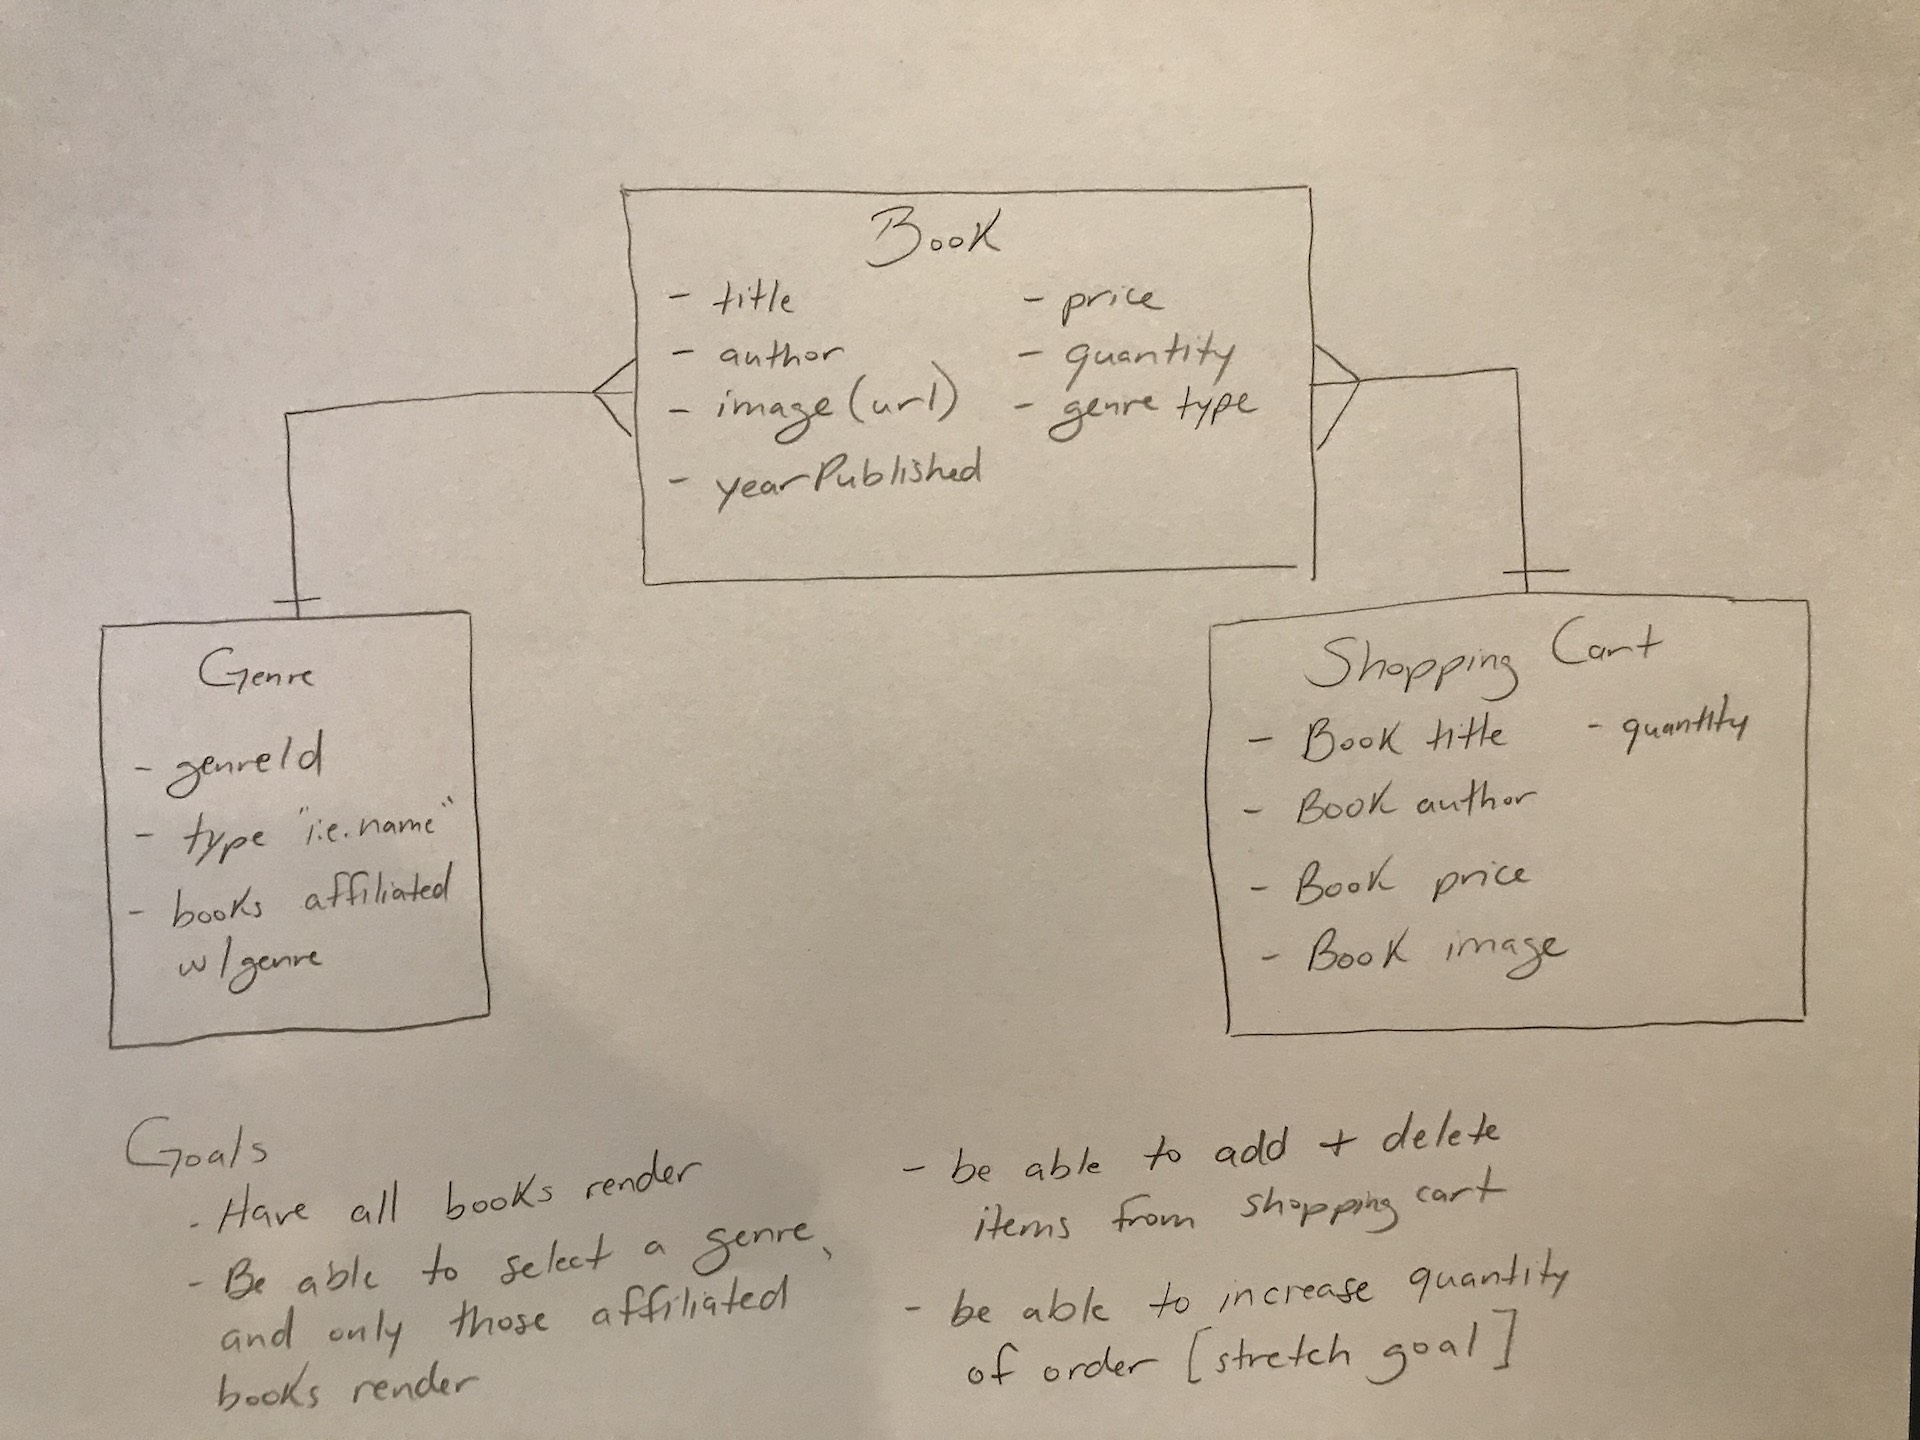 Book
- title
- author
- image (url)
- yearPublished
- price
- quantity
- genre type
Genre
- genreId
- type "i.e. name"
- books affiliated
w/genre
Shopping Cart
- Book title
- Book author
- Book price
- Book image
- quantity
Goals
- Have all books render
- Be able to select a genre,
and only those affiliated
books render
- be able to add + delete
items from shopping cart
- be able to increase quantity
of order [stretch goal]